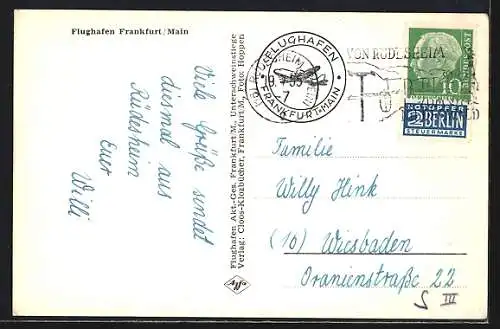 Flughafen Frankfurt/Main
Viele Grüße sendet
diesmal aus
Rüdesheim
Euer
Willi
Flughafen Akt.-Ges. Frankfurt/M., Unterschweinstiege
Verlag: Cloos-Klozbücher, Frankfurt/M., Foto: Hoppen
Agfa
FLUGHAFEN
FRANKFURT-MAIN
VON RÜDESHEIM
10
DEUTSCHE BUNDESPOST
NOTOPFER
2 BERLIN
STEUERMARKE
Familie
Willy Hink
(10) Wiesbaden
Oranienstraße 22
S III